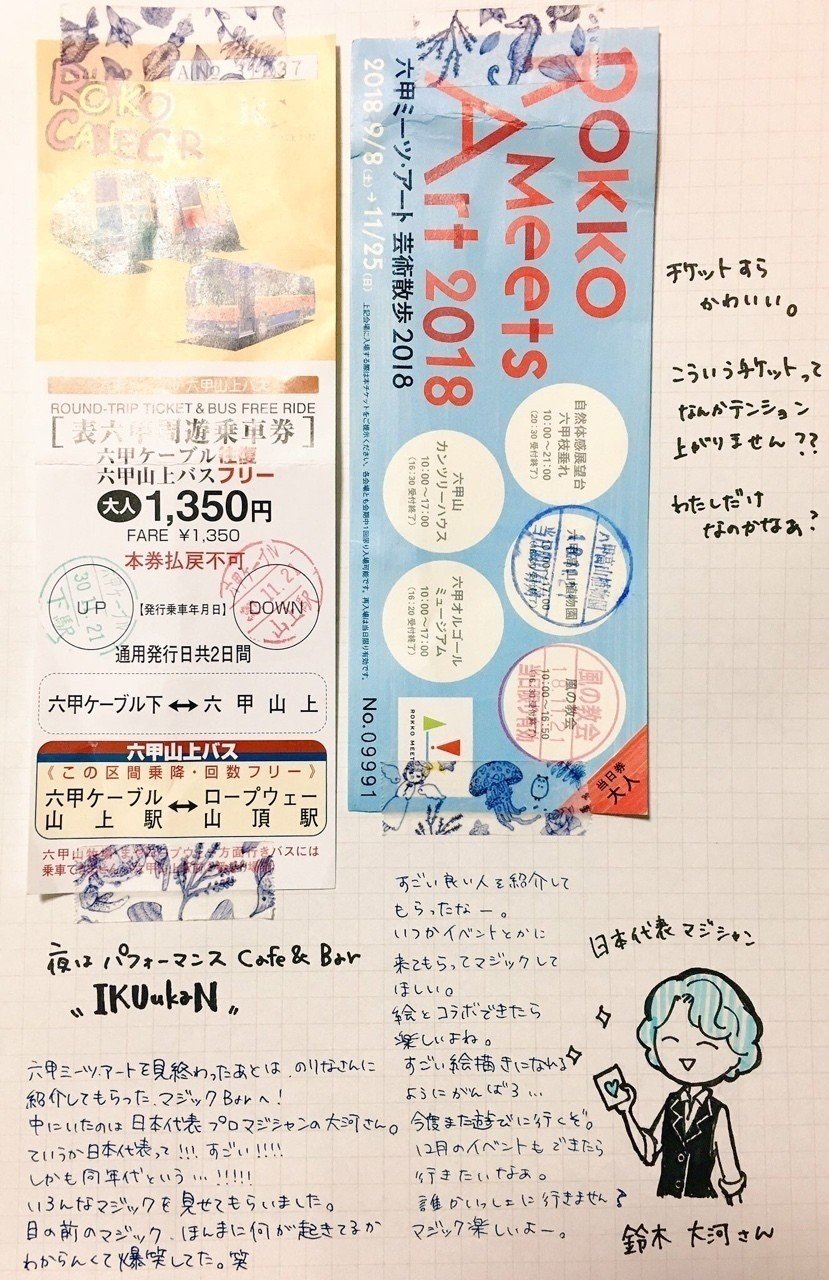 ROKKO
CABLE CAR
ROUND-TRIP TICKET & BUS FREE RIDE
[表六甲周遊乗車券]
六甲ケーブル往復
六甲山上バスフリー
大人 1,350円
FARE ¥1,350
本券払戻不可
UP 【発行乗車年月日】 DOWN
六甲ケーブル
30.11.21
下駅
六甲ケーブル
山上駅
通用発行日共2日間
六甲ケーブル下⟷六甲山上
六甲山上バス
《この区間乗降・回数フリー》
六甲ケーブル山上駅⟷ロープウェー山頂駅
ROKKO
Meets
Art 2018
六甲ミーツ・アート 芸術散歩2018
2018 9/8(土)→11/25(日)
上記会場に入場する際は本チケットをご提示ください。各会場とも会期中1回限り入場可能です。再入場は当日限り有効です。
自然体感展望台
六甲枝垂れ
10:00〜21:00
(20:30 受付終了)
六甲山
カンツリーハウス
10:00〜17:00
(16:30 受付終了)
六甲高山植物園
10:00〜17:00
六甲オルゴール
ミュージアム
10:00〜17:00
(16:20 受付終了)
風の教会
10:00〜16:50
六甲高山植物園
風の教会
当日限り有効
ROKKO MEETS
No.09991
当日券
大人
チケットすら
かわいい。
こういうチケットって
なんかテンション
上がりません??
わたしだけ
なのかなぁ?
夜は パフォーマンス Cafe & Bar
"IKUukaN"
六甲ミーツ・アートを見終わったあとは、のりなさんに
紹介してもらった、マジックBarへ!
中にいたのは日本代表プロマジシャンの大河さん。
ていうか日本代表って!!!すごい!!!!
しかも同年代という…!!!!!
いろんなマジックを見せてもらいました。
目の前のマジック、ほんまに何が起きてるか
わからんくて爆笑してた。笑
すごい良い人を紹介して
もらったなー。
いつかイベントとかに
来てもらってマジックして
ほしい。
絵とコラボできたら
楽しいよね。
すごい絵描きになれる
ようにがんばろ…
今度また遊びに行くぞ。
12月のイベントもできたら
行きたいなぁ。
誰かいっしょに行きません?
マジック楽しいよー。
日本代表マジシャン
鈴木 大河さん